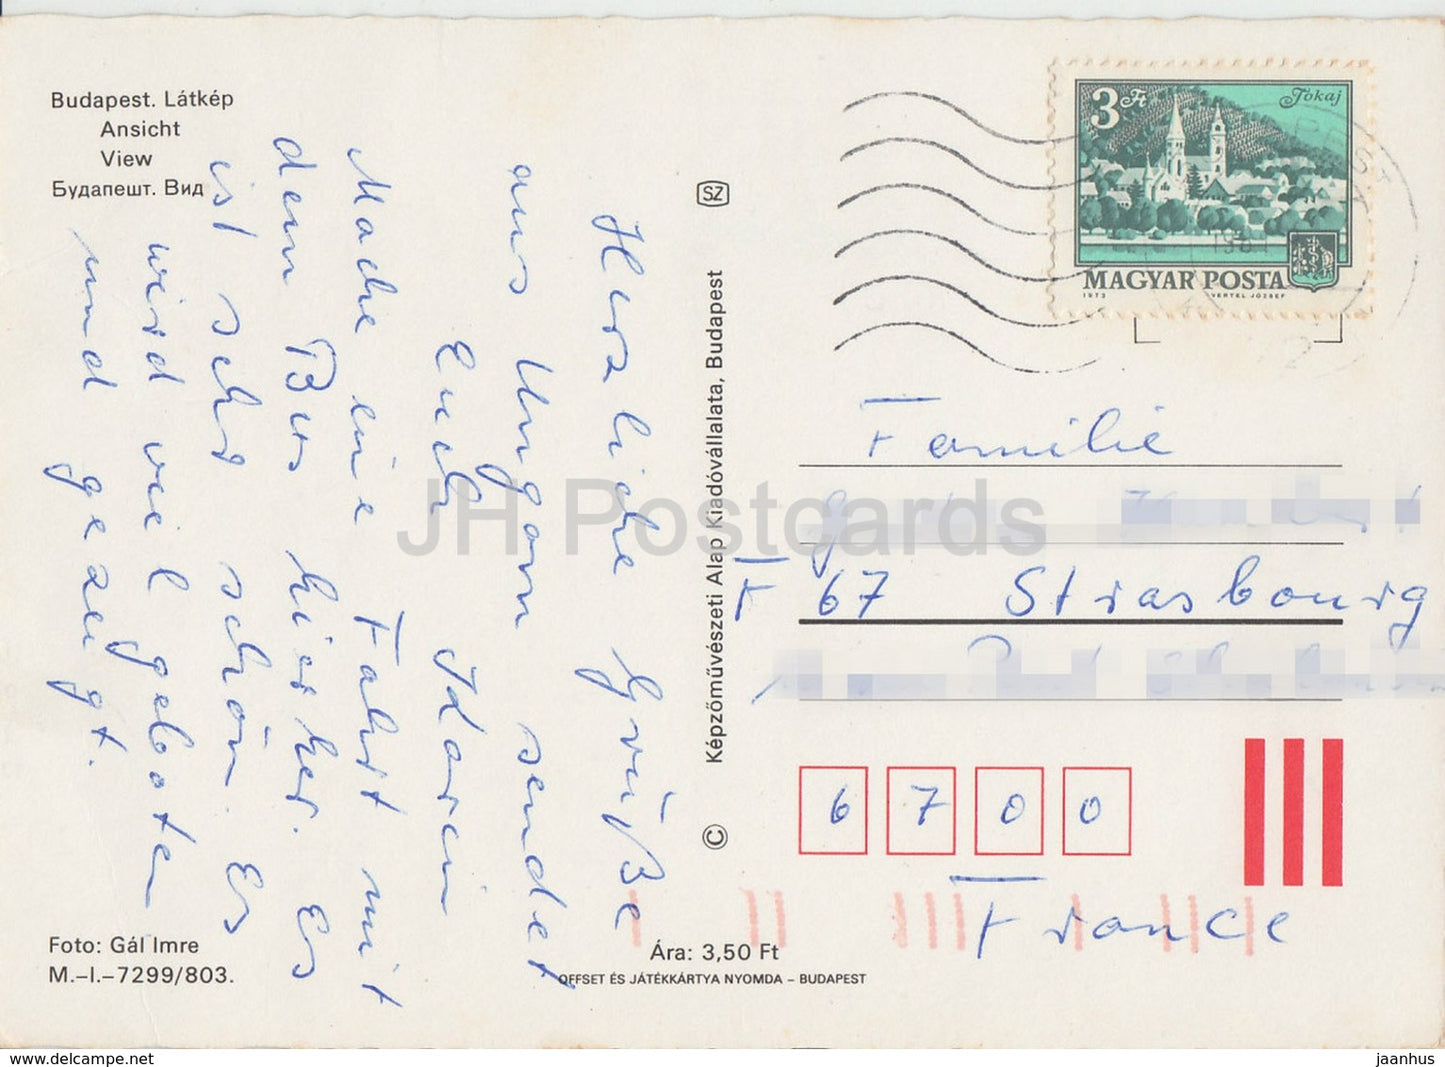 Budapest. Látkép
Ansicht
View
Будапешт. Вид
Herzliche Grüße
aus Ungarn sendet
Euch Karin
Mache eine Fahrt mit
dem Bus hierher. Es
ist sehr schön. Es
wird viel geboten
und gezeigt.
Foto: Gál Imre
M.–I.–7299/803.
SZ
Képzőművészeti Alap Kiadóvállalata, Budapest
©
Ára: 3,50 Ft
OFFSET ÉS JÁTÉKKÁRTYA NYOMDA – BUDAPEST
3 Ft
Tokaj
MAGYAR POSTA
1973 VERTEL JÓZSEF
Familie
F 67 Strasbourg
6 7 0 0
France
JH Postcards
www.delcampe.net
jaanhus